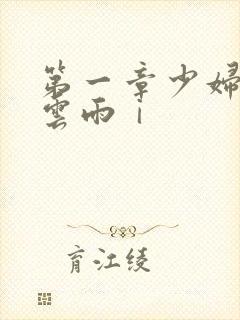 第一章少婦
雲雨｜
育江绫